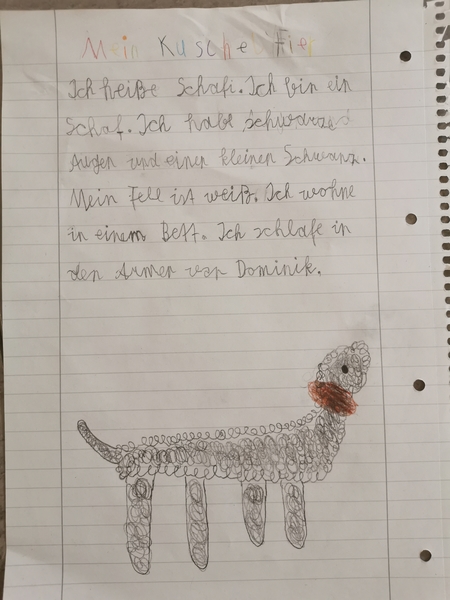 Mein Kuscheltier
Ich heiße Schafi. Ich bin ein
Schaf. Ich habe schwarze
Augen und einen kleinen Schwanz.
Mein Fell ist weiß. Ich wohne
in einem Bett. Ich schlafe in
den Armen von Dominik.